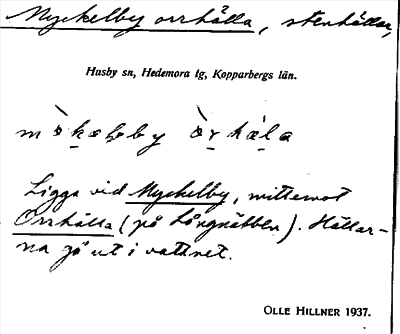 Myckelby orrhälla, stenhällar,
Husby sn, Hedemora tg, Kopparbergs län.
Ligga vid Myckelby, mittemot
Orrhälla (på Långnäbben). Hällar-
na gå ut i vattnet.
OLLE HILLNER 1937.